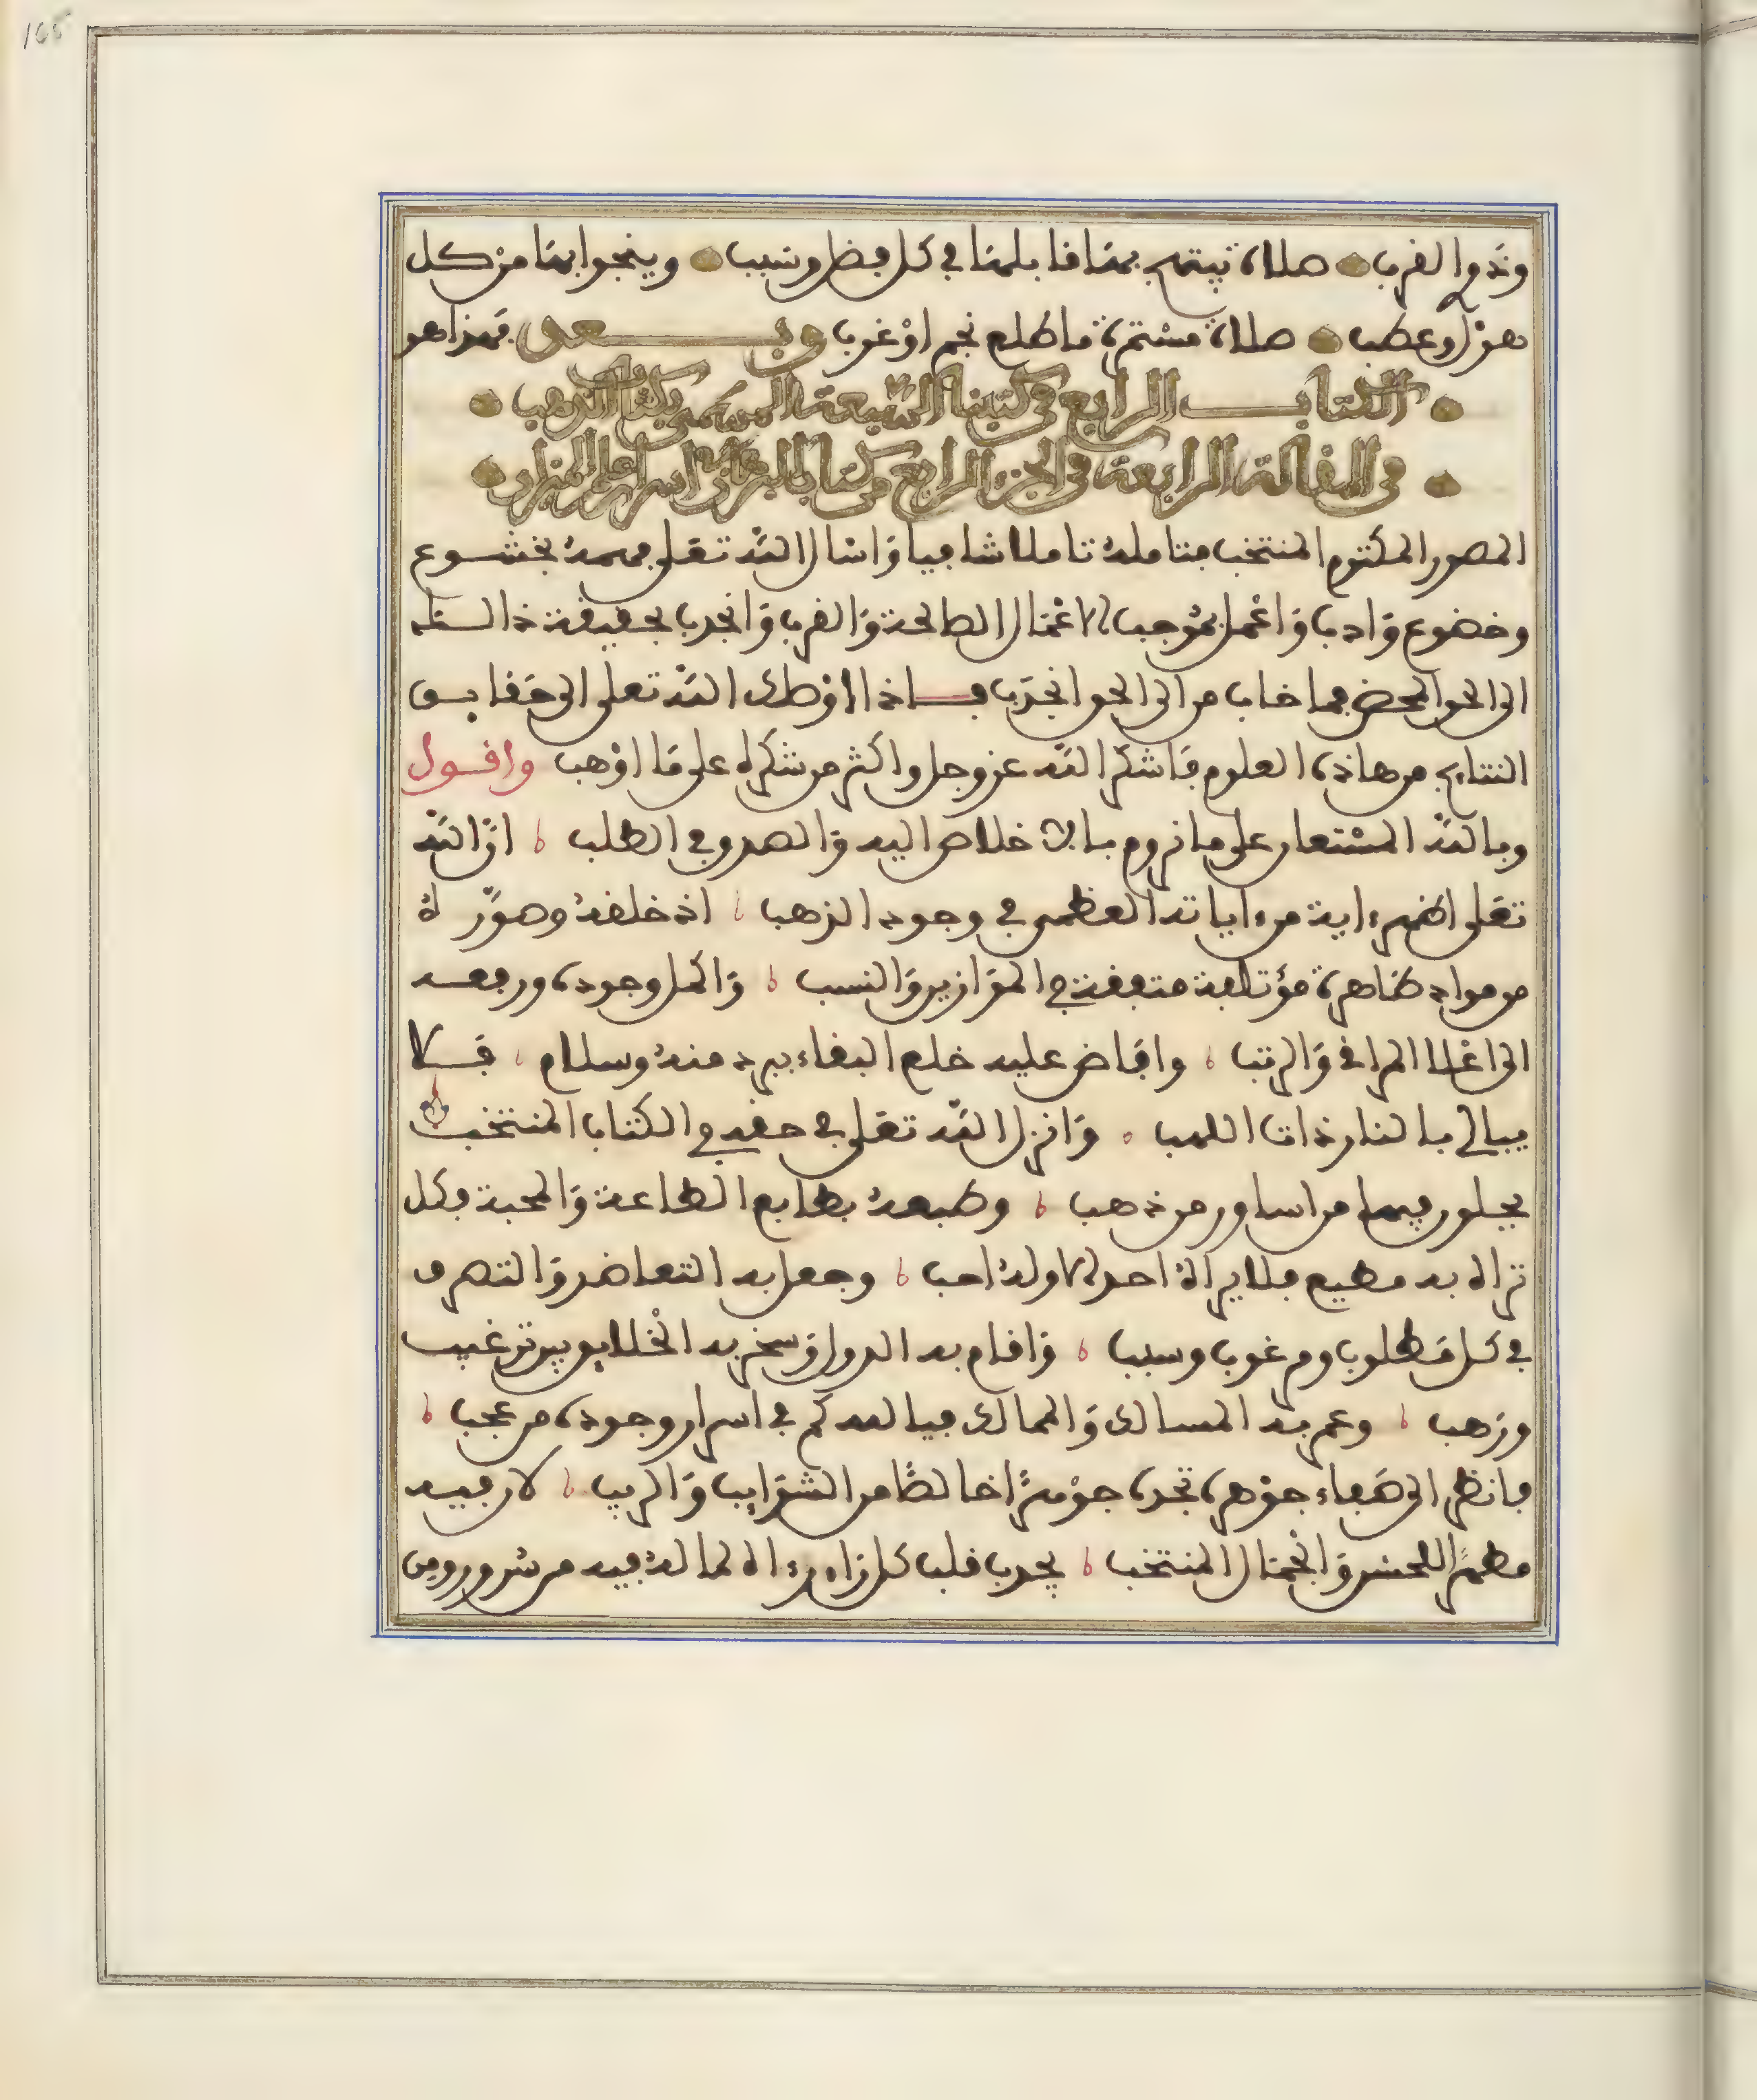 165
وذوا القرب صلاة يبتهج بها قابلها في كل قصد وسبب وينجوا بها من كل
هول وعطب صلاة مستمرة ما طلع نجم او غرب وبعد فهذا هو
الكتاب الرابع في كتبنا السبعة المسمى بكتاب الذهب
في المقالة الرابعة في الجزء الرابع من كتاب البرهان في اسرار علم الميزان
المصور المكتوم المنتخب فتامله تاملا شافيا واسال الله تعلى فهمه بخشوع
وخضوع وادب واعمل بموجب الاعمال الصالحة والقرب وانجذب بحقيقة ذالك
الى الحق المحض فما خاب من الى الحق انجذب فاذا اوصلك الله تعلى الى حقايق
النتايج من هاذه العلوم فاشكر الله عز وجل واكثر من شكره على ما اوهب واقول
وبالله المستعان على ما نروم بالاخلاص اليه والصدق في الطلب ان الله
تعلى اظهر ءاية من ءاياته العظمى في وجود الذهب اذ خلقه وصوره
من مواد طاهرة مؤتلفة متفقة في الموازين والنسب واكمل وجوده ورفعه
الى اعلا المراقي والرتب وافاض عليه خلع البقاء ببرد منه وسلام فلا
يبالي بالنار ذات اللهب وانزل الله تعلى في حقه في الكتاب المنتخب
يحلون فيها من اساور من ذهب وطبعه بطابع الطاعة والمحبة فكل
تراه به مطيع فلا يراه احد الا وله احب وجعل به التعاضد والتصرف
في كل مطلوب ومرغوب وسبب واقام به الدول وسخر به الخلايق بين ترغيب
ورهب وعمر به المسالك والممالك فيا لله كم في اسرار وجوده من عجب
فانظر الى صفاء جوهره تجده جوهرا خالصا من الشوايب والريب لان فيه
مظهرا للحسن والجمال المنتخب يجذب قلب كل راء راه لما له فيه من سرور ومن